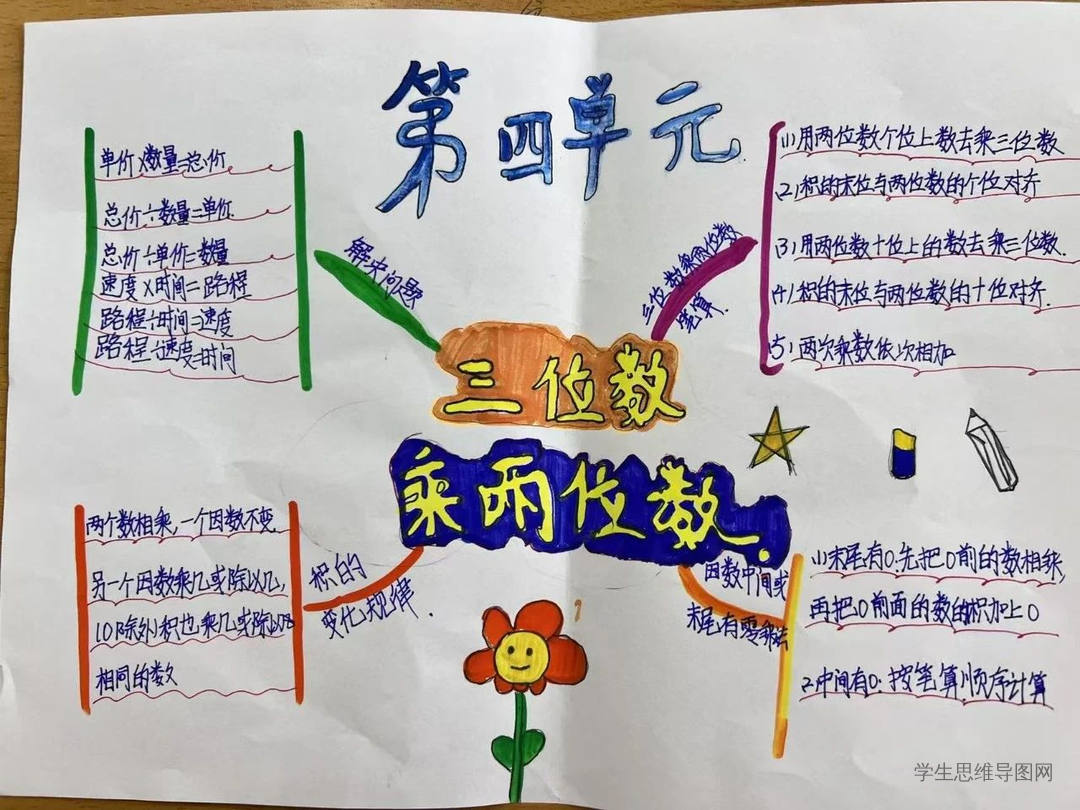 第四单元
单价×数量=总价
总价÷数量=单价
总价÷单价=数量
速度×时间=路程
路程÷时间=速度
路程÷速度=时间
解决问题
三位数乘两位数
笔算
(1)用两位数个位上数去乘三位数
(2)积的末位与两位数的个位对齐
(3)用两位数十位上的数去乘三位数.
(4)积的末位与两位数的十位对齐.
(5)两次乘数依次相加
三位数
乘两位数.
两个数相乘,一个因数不变.
另一个因数乘几或除以几,
(0除外)积也乘几或除以几
相同的数
积的
变化规律.
因数中间或
末尾有零乘法
1.末尾有0:先把0前的数相乘,
再把0前面的数的积加上0
2.中间有0:按笔算顺序计算
学生思维导图网